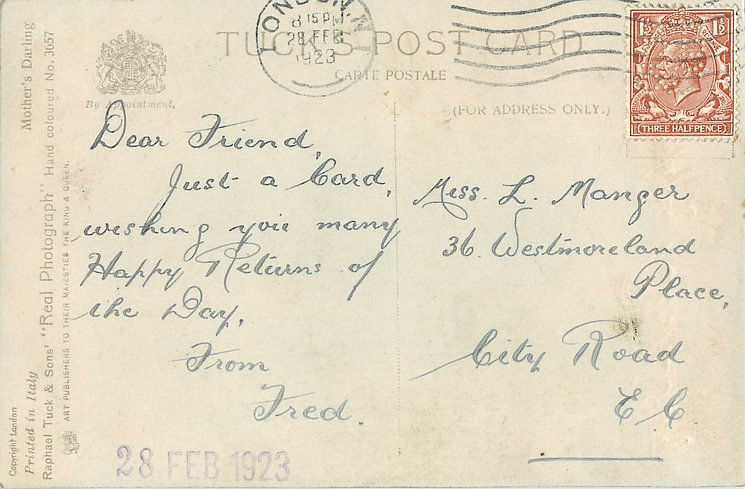 Mother's Darling
Copyright London
Printed in Italy
Raphael Tuck & Sons' "Real Photograph" Hand coloured No. 3657
ART PUBLISHERS TO THEIR MAJESTIES THE KING & QUEEN.
By Appointment.
TUCK'S POST CARD
CARTE POSTALE
(FOR ADDRESS ONLY.)
LONDON. N
8 15 PM
28 FEB
1923
THREE HALFPENCE
Dear Friend,
Just a Card,
wishing you many
Happy Returns of
the Day,
From
Fred.
28 FEB 1923
Miss. L. Manger
36. Westmoreland
Place,
City Road
E C